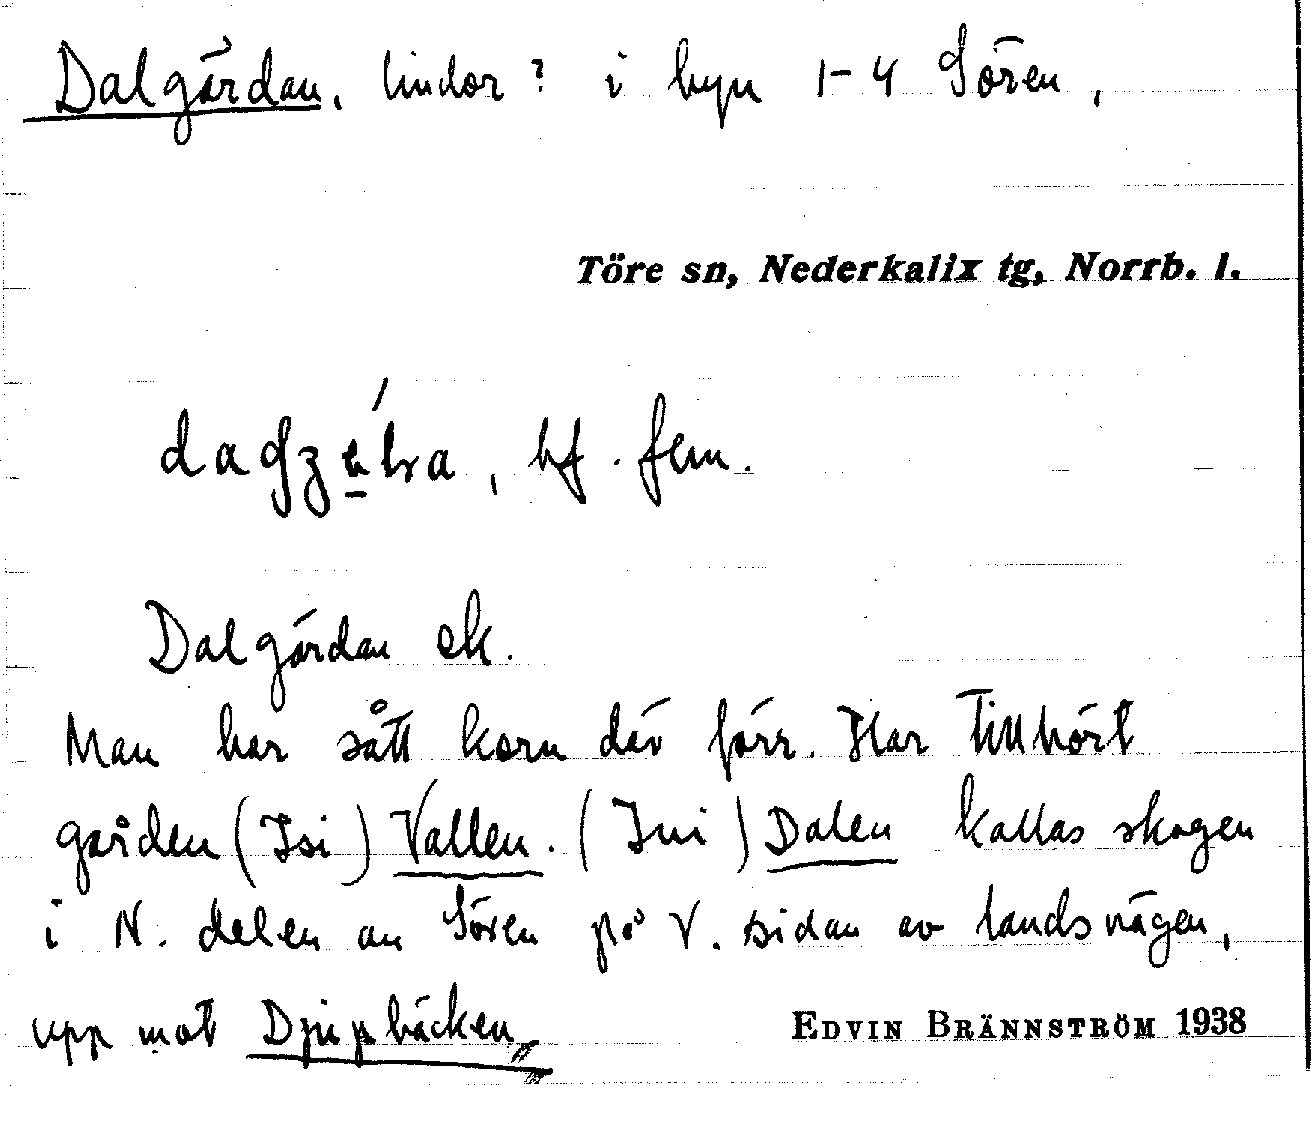 Dalgärdan, lindor? i byn 1-4 Sören,
Töre sn, Nederkalix tg, Norrb. l.
bf. fem.
Dalgärdan ek.
Man har sått korn där förr. Har tillhört
gården (Isi) Vallen. (Ini) Dalen kallas skogen
i N. delen av Sören på V. sidan av landsvägen,
upp mot Djupbäcken
EDVIN BRÄNNSTRÖM 1938